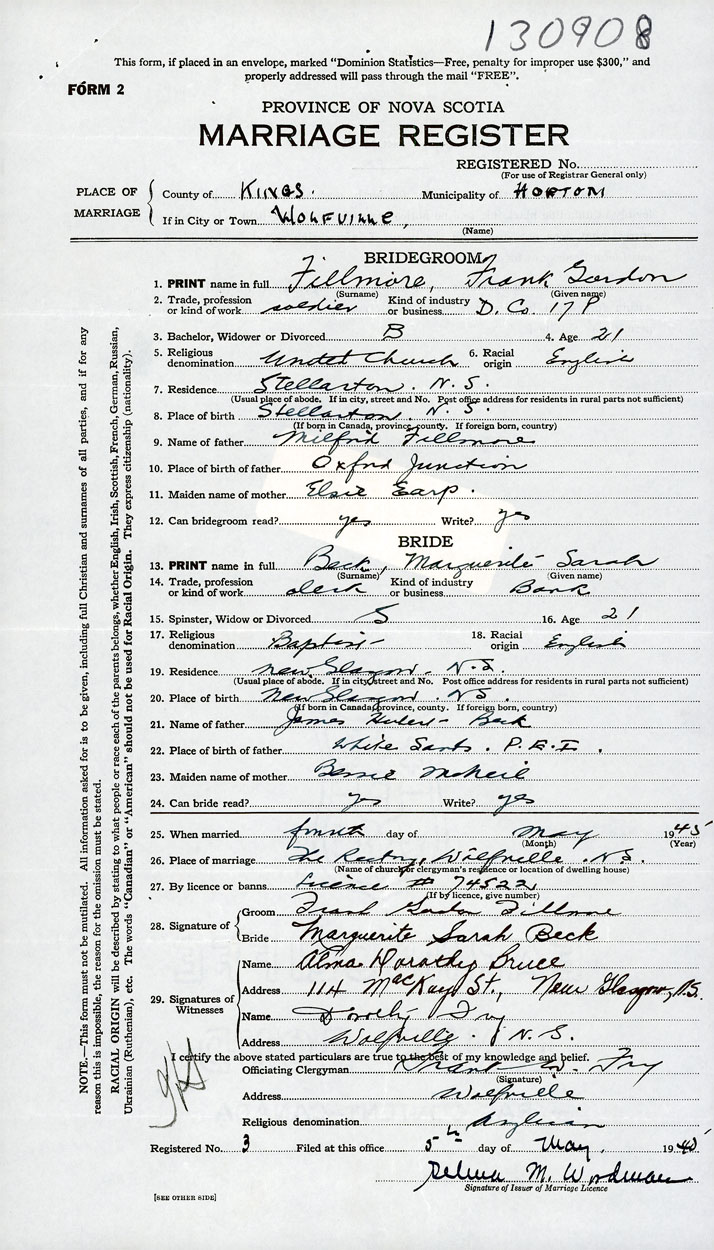 130908
This form, if placed in an envelope, marked "Dominion Statistics—Free, penalty for improper use $300," and
properly addressed will pass through the mail "FREE".
FORM 2
PROVINCE OF NOVA SCOTIA
MARRIAGE REGISTER
REGISTERED No.
(For use of Registrar General only)
PLACE OF MARRIAGE
County of Kings. Municipality of HORTON
If in City or Town WOLFVILLE,
(Name)
BRIDEGROOM
1. PRINT name in full Fillmore, Frank Gordon
(Surname) (Given name)
2. Trade, profession or kind of work soldier Kind of industry or business D. Co. 17 P
3. Bachelor, Widower or Divorced B 4. Age 21
5. Religious denomination United Church 6. Racial origin English
7. Residence Stellarton. N.S.
(Usual place of abode. If in city, street and No. Post office address for residents in rural parts not sufficient)
8. Place of birth Stellarton. N.S.
(If born in Canada, province, county. If foreign born, country)
9. Name of father Milford Fillmore
10. Place of birth of father Oxford Junction
11. Maiden name of mother Elsie Earp.
12. Can bridegroom read? yes Write? yes
BRIDE
13. PRINT name in full Beck, Marguerite Sarah
(Surname) (Given name)
14. Trade, profession or kind of work clerk Kind of industry or business Bank
15. Spinster, Widow or Divorced S 16. Age 21
17. Religious denomination Baptist 18. Racial origin English
19. Residence New Glasgow. N.S.
(Usual place of abode. If in city, street and No. Post office address for residents in rural parts not sufficient)
20. Place of birth New Glasgow. N.S.
(If born in Canada, province, county. If foreign born, country)
21. Name of father James Hubert Beck
22. Place of birth of father White Sands. P.E.I.
23. Maiden name of mother Bessie McNeil
24. Can bride read? yes Write? yes
25. When married fourth day of May 1945
(Month) (Year)
26. Place of marriage The Rectory, Wolfville. N.S.
(Name of church or clergyman's residence or location of dwelling house)
27. By licence or banns Licence # 74522
(If by licence, give number)
28. Signature of
Groom Frank Gordon Fillmore
Bride Marguerite Sarah Beck
29. Signatures of Witnesses
Name Alma Dorothy Bruce
Address 114 MacKay St., New Glasgow, N.S.
Name Dorothy Fry
Address Wolfville. N.S.
I certify the above stated particulars are true to the best of my knowledge and belief.
Officiating Clergyman Frank W. Fry
(Signature)
Address Wolfville
Religious denomination Anglican
Registered No. 3 Filed at this office 5th day of May. 1945
Signature of Issuer of Marriage Licence
[SEE OTHER SIDE]
NOTE.—This form must not be mutilated. All information asked for is to be given, including full Christian and surnames of all parties, and if for any
reason this is impossible, the reason for the omission must be stated.
RACIAL ORIGIN will be described by stating to what people or race each of the parents belongs, whether English, Irish, Scottish, French, German, Russian,
Ukrainian (Ruthenian), etc. The words "Canadian" or "American" should not be used for Racial Origin. They express citizenship (nationality).